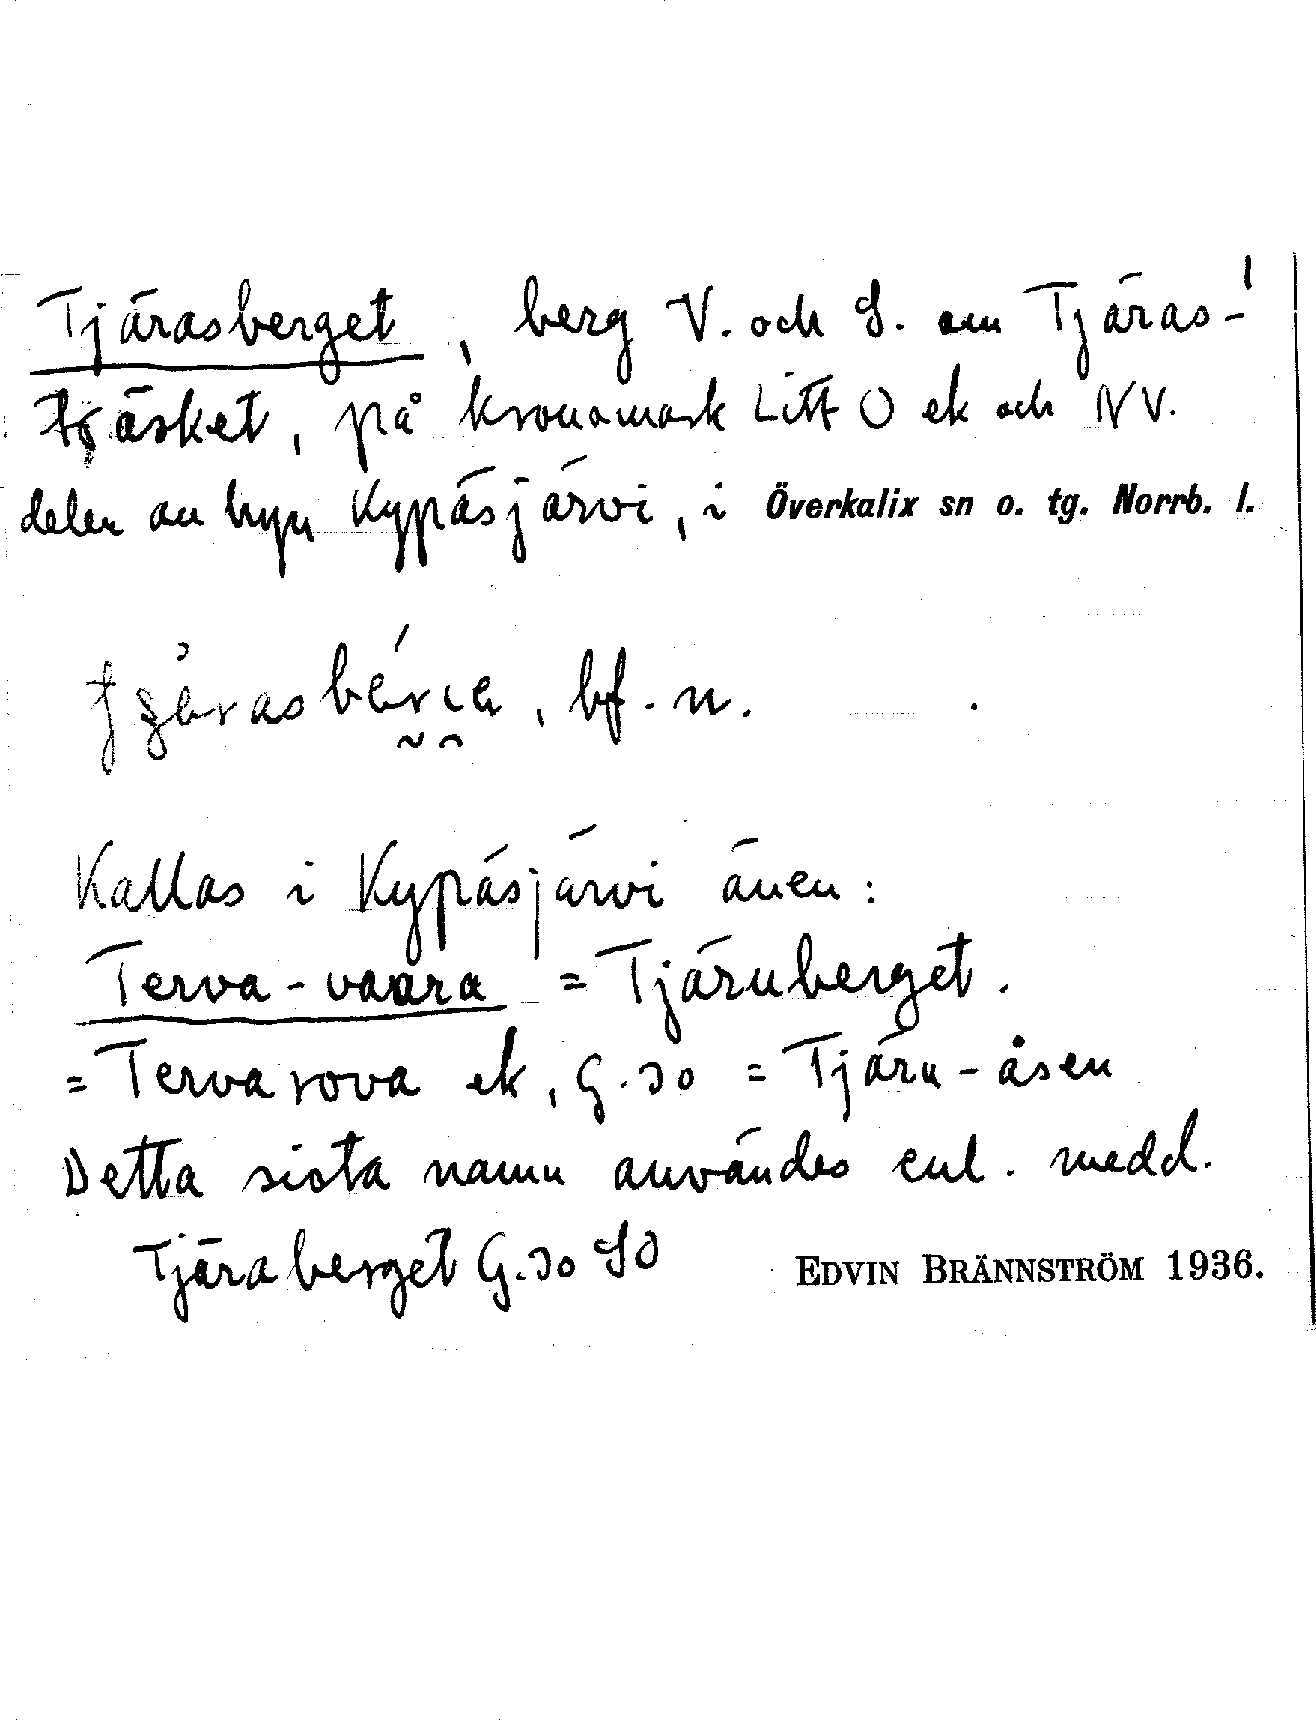 Tjärasberget, berg V. och S. om Tjäras-
träsket, på kronomark Litt O ek och NV.
delen av byn Kypäsjärvi, i Överkalix sn o. tg. Norrb. l.
bf. n.
Kallas i Kypäsjärvi även:
Terva-vaara = Tjäruberget.
= Tervarova ek, G.30 = Tjäru-åsen
Detta sista namn användes enl. medd.
Tjäraberget G.30 SO
EDVIN BRÄNNSTRÖM 1936.